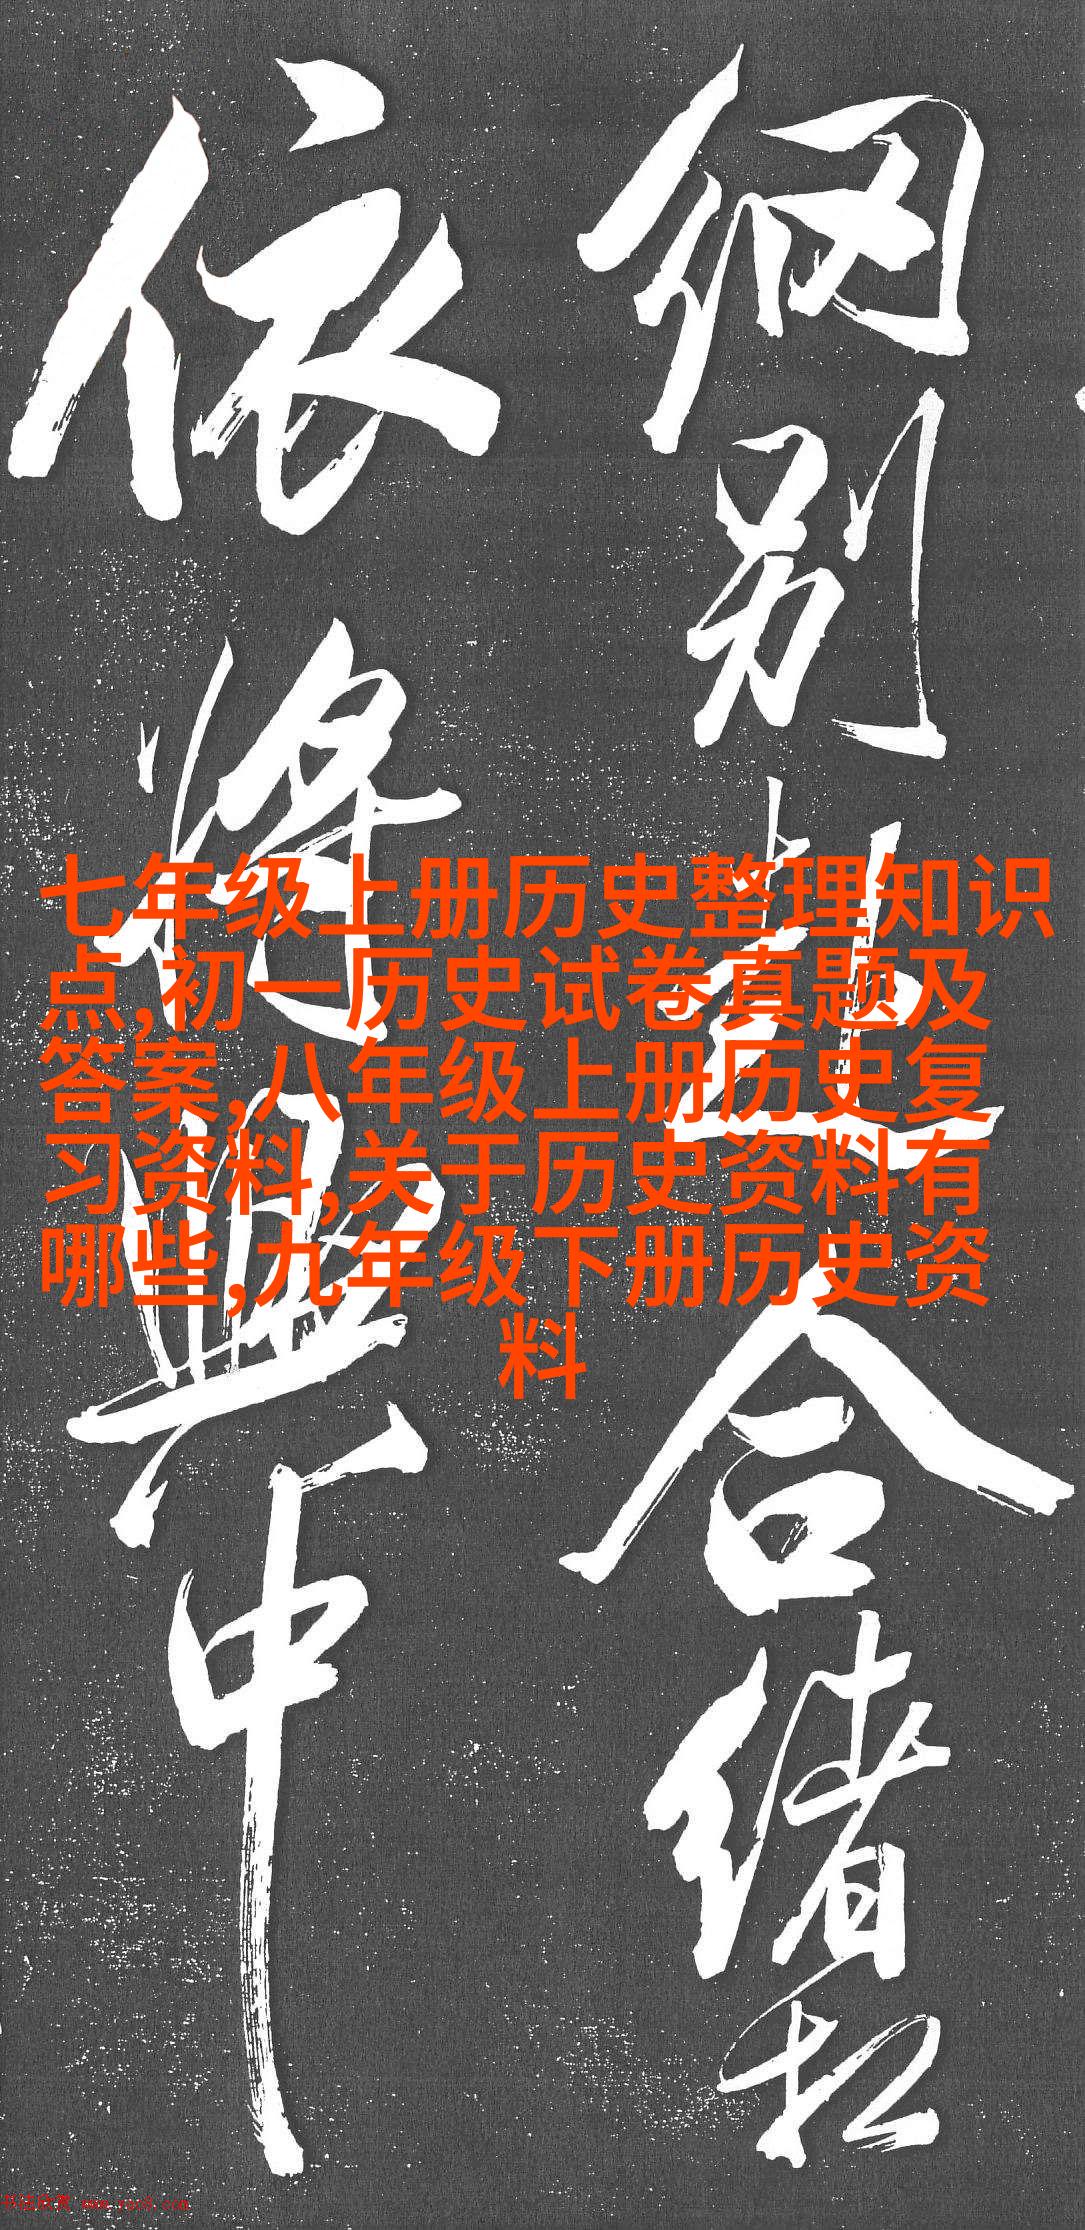 七年级上册历史整理知识
点,初一历史试卷真题及
答案,八年级上册历史复
习资料,关于历史资料有
哪些,九年级下册历史资
料
别
合绪
依将兴中
书法欣赏 www.yac8.com